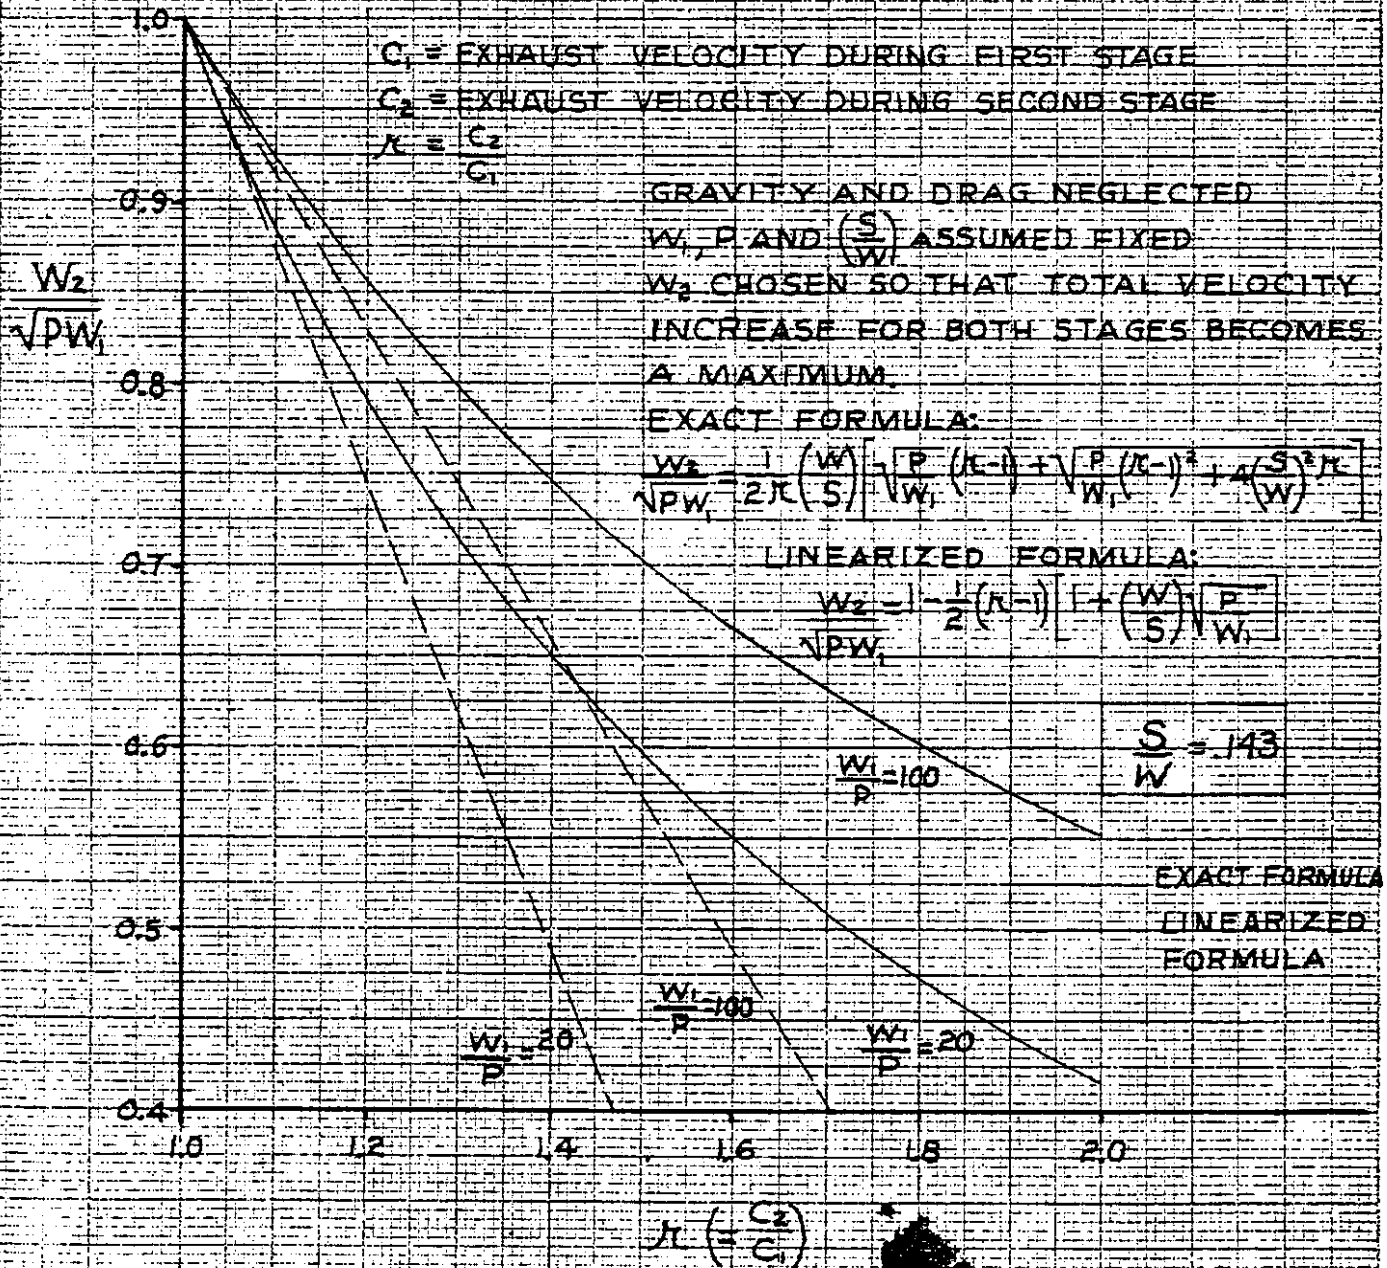 1.0
C₁ = EXHAUST VELOCITY DURING FIRST STAGE
C₂ = EXHAUST VELOCITY DURING SECOND STAGE
r = C₂/C₁
0.9
GRAVITY AND DRAG NEGLECTED
W₁, P AND (S/W) ASSUMED FIXED
W₂ CHOSEN SO THAT TOTAL VELOCITY
W₂/√PW₁
INCREASE FOR BOTH STAGES BECOMES
0.8
A MAXIMUM.
EXACT FORMULA:
W₂/√PW₁ = 1/2r (W/S) [-√P/W₁ (r-1) + √P/W₁ (r-1)² + 4(S/W)² r]
0.7
LINEARIZED FORMULA:
W₂/√PW₁ = 1 - 1/2 (r-1) [1 + (W/S) √P/W₁]
0.6
S/W = .143
W₁/P = 100
EXACT FORMULA
0.5
LINEARIZED
FORMULA
W₁/P = 100
W₁/P = 20
W₁/P = 20
0.4
1.0 1.2 1.4 1.6 1.8 2.0
r (= C₂/C₁)